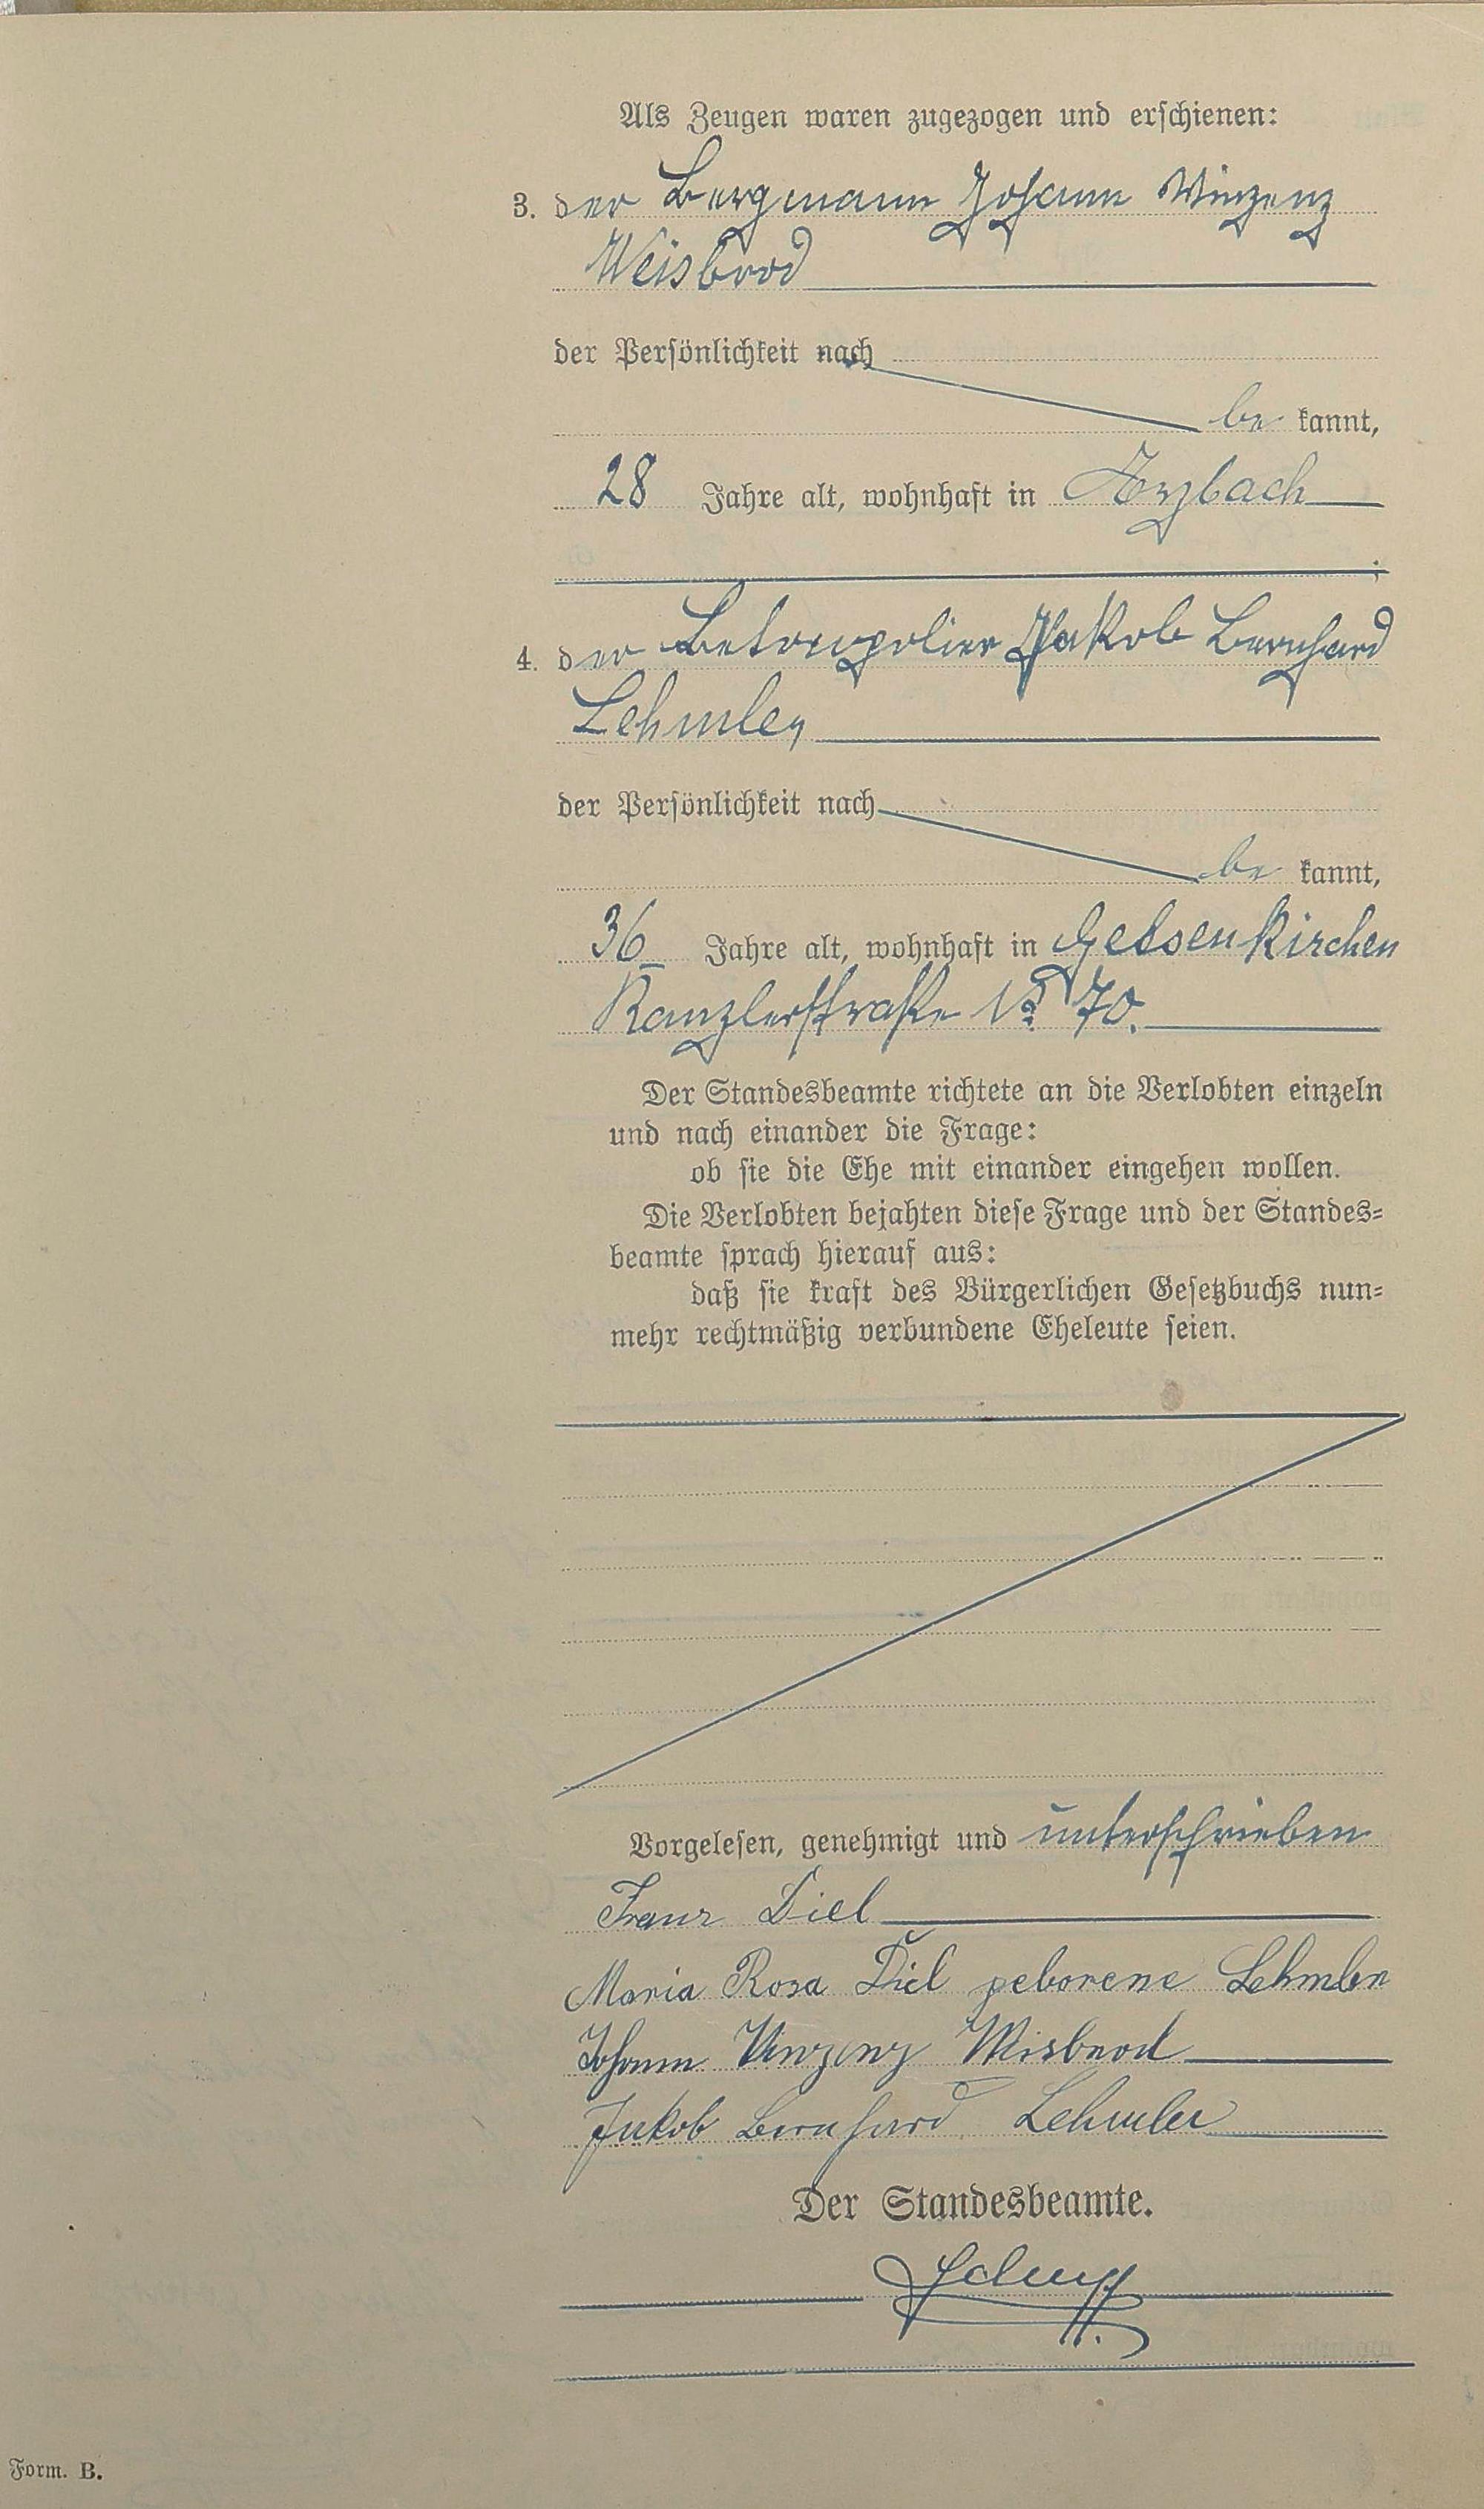 Als Zeugen waren zugezogen und erschienen:
3. der Bergmann Johann Winzenz
Weisbrod
der Persönlichkeit nach
be kannt,
28 Jahre alt, wohnhaft in Arzbach
;
4. der Betonpolier Jakob Bernhard
Lehmler
der Persönlichkeit nach
be kannt,
36 Jahre alt, wohnhaft in Gelsenkirchen
Kanzlerstraße No 70.
Der Standesbeamte richtete an die Verlobten einzeln
und nach einander die Frage:
ob sie die Ehe mit einander eingehen wollen.
Die Verlobten bejahten diese Frage und der Standes=
beamte sprach hierauf aus:
daß sie kraft des Bürgerlichen Gesetzbuchs nun=
mehr rechtmäßig verbundene Eheleute seien.
Vorgelesen, genehmigt und unterschrieben
Franz Diel
Maria Rosa Diel geborene Lehmler
Johann Vinzenz Wisbrod
Jakob Bernhard Lehmler
Der Standesbeamte.
Form. B.